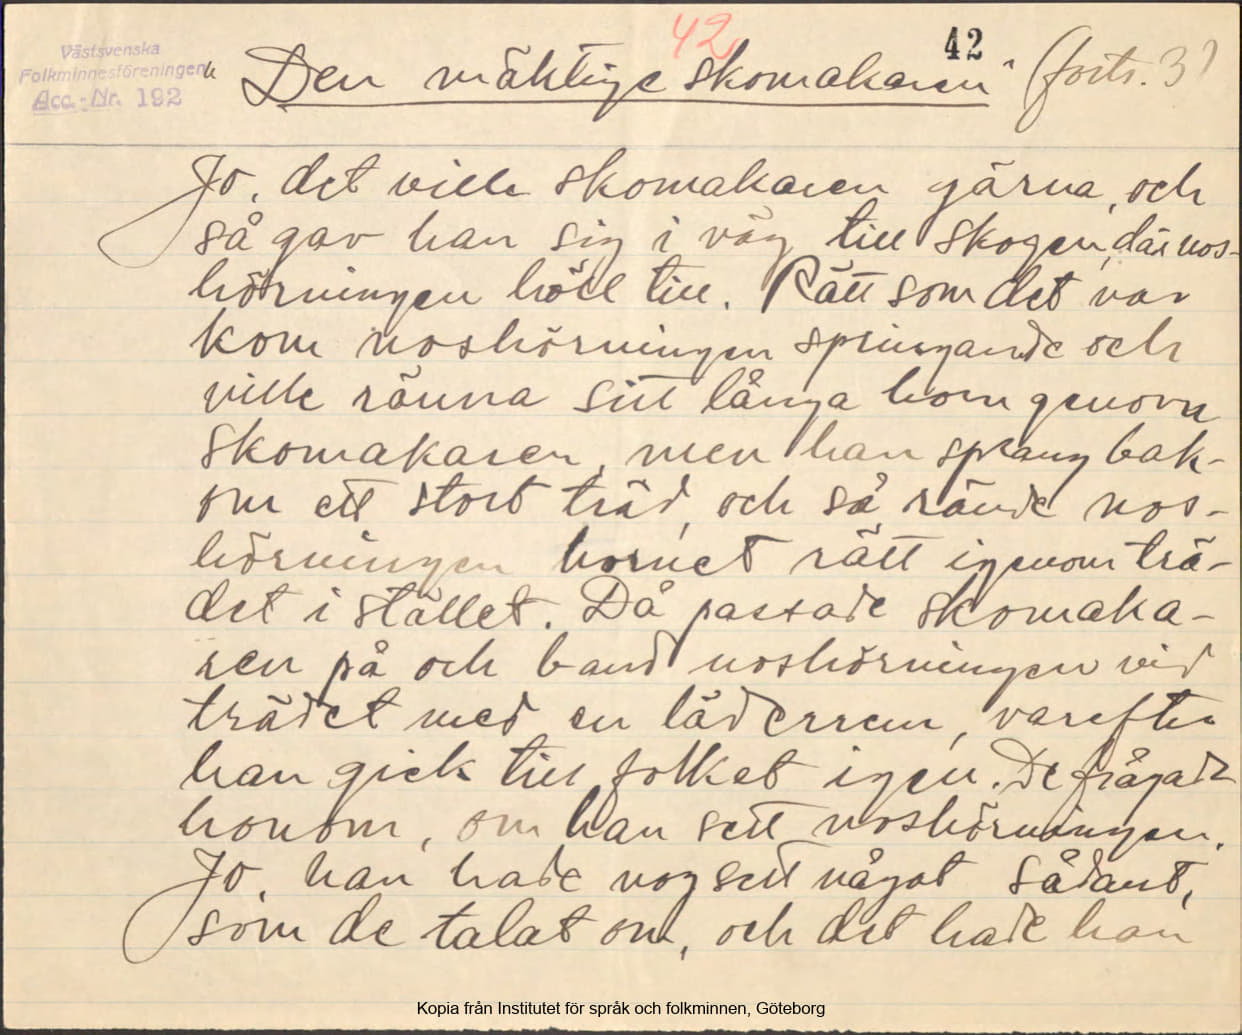 42
42
Västsvenska
Folkminnesföreningen
Acc.-Nr. 192
"Den mäktige skomakaren" (forts. 3)
Jo, det ville skomakaren gärna, och
så gav han sig i väg till skogen, där nos-
hörningen höll till. Rätt som det var
kom noshörningen springande och
ville ränna sitt långa horn genom
skomakaren, men han sprang bak-
om ett stort träd, och så rände nos-
hörningen hornet rätt igenom trä-
det i stället. Då passade skomaka-
ren på och band noshörningen vid
trädet med en läderrem, varefter
han gick till folket igen. De frågade
honom, om han sett noshörningen.
Jo, han hade nog sett något sådant,
som de talat om, och det hade han
Kopia från Institutet för språk och folkminnen, Göteborg